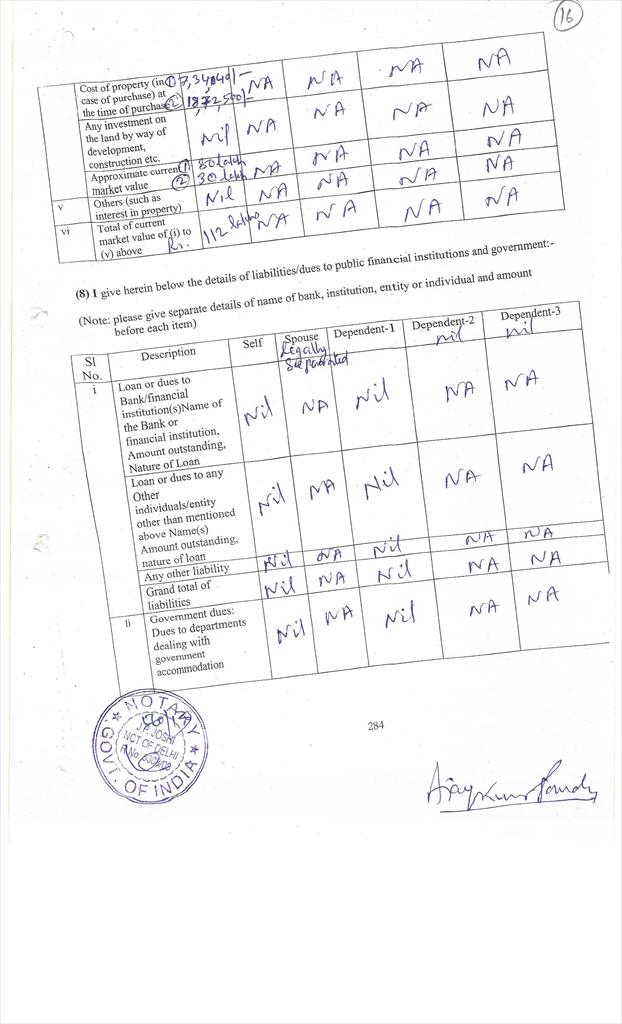 16
Cost of property (in ① 7,34,040/- NA NA NA NA
case of purchase) at
the time of purchase ② 18,72,500/-
Any investment on Nil NA NA NA NA
the land by way of
development,
construction etc.
Approximate current ① 80 lakh NA NA NA NA
market value ② 30 lakh
v Others (such as Nil NA NA NA NA
interest in property)
vi Total of current Rs. 112 lakhs NA NA NA NA
market value of (i) to
(v) above
(8) I give herein below the details of liabilities/dues to public financial institutions and government:-
(Note: please give separate details of name of bank, institution, entity or individual and amount
before each item)
Sl No. Description Self Spouse Legally Seperated Dependent-1 Dependent-2 nil Dependent-3 nil
i Loan or dues to Nil NA Nil NA NA
Bank/financial
institution(s)Name of
the Bank or
financial institution,
Amount outstanding,
Nature of Loan
Loan or dues to any Nil NA Nil NA NA
Other
individuals/entity
other than mentioned
above Name(s)
Amount outstanding,
nature of loan
Any other liability Nil NA Nil NA NA
Grand total of Nil NA Nil NA NA
liabilities
Ii Government dues: Nil NA Nil NA NA
Dues to departments
dealing with
government
accommodation
NOTARY
JOSHI
NCT OF DELHI
GOVT. OF INDIA
284
Ajay Kumar Pandey